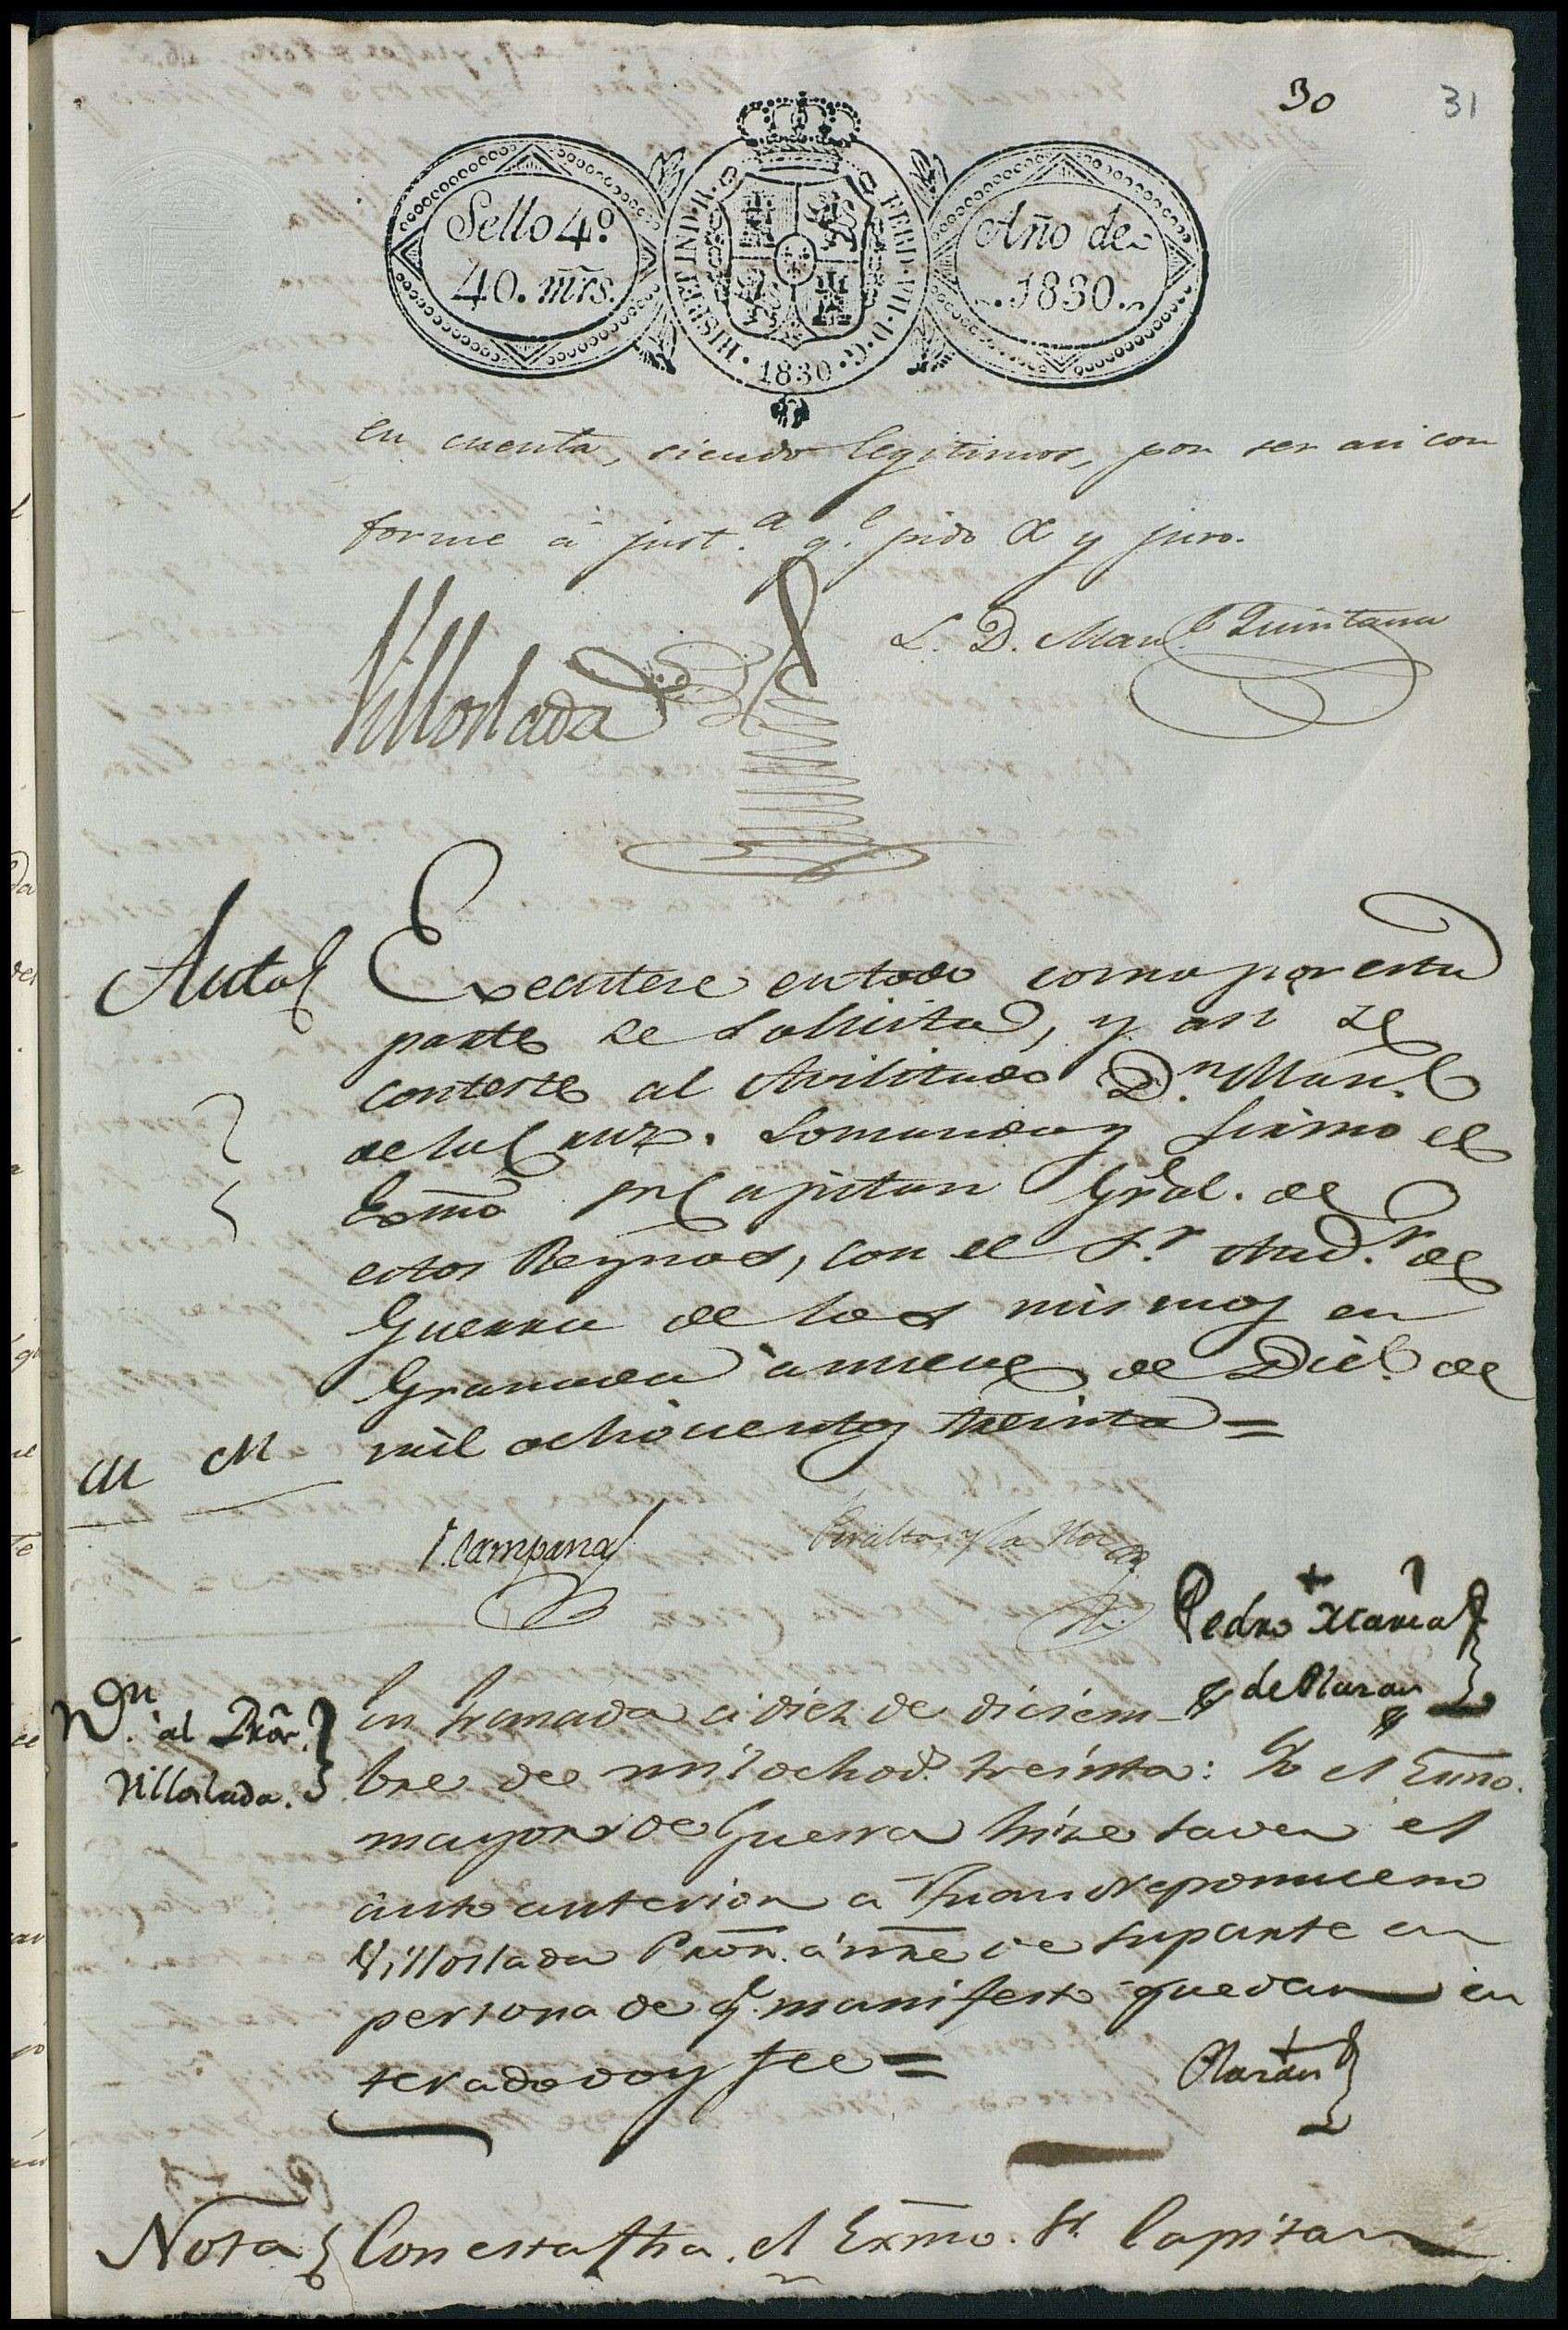 30 31
Sello 4º
40. mrs.
HISP. ET IND. R.
FERD. VII. D. G.
1830
Año de
1830.
en cuenta, siendo legitimos, por ser asi con
forme á just.ª q.e pido &a y juro.
Villoslada
L. D. Man.l Quintana
Auto
Executese en todo como por esta
parte se solicita, y asi se
conteste al Avilitado D.n Man.l
de la Cruz. Lo mando y firmo el
Exmo Sr Capitan Gral. de
estos Reynos, con el S.r Aud.r de
Guerra de los mismos en
Granada á nueve de Dic.e de
mil ochocientos treinta =
M M
J. Campana
Peralta y la
Pedro Maria
de Olaran
N.on al Pror.
Villoslada.
En Granada á diez de diciem-
bre de mil ochod.s treinta: Yo el Esnno.
mayor de Guerra hize saver el
auto anterior á Juan Nepomuceno
Villoslada Pron. á nre de su parte en
persona de q.e manifesto quedar en
terado doy fee =
Olaran
Nota
Con esta fha. el Exmo. Sr. Capitan